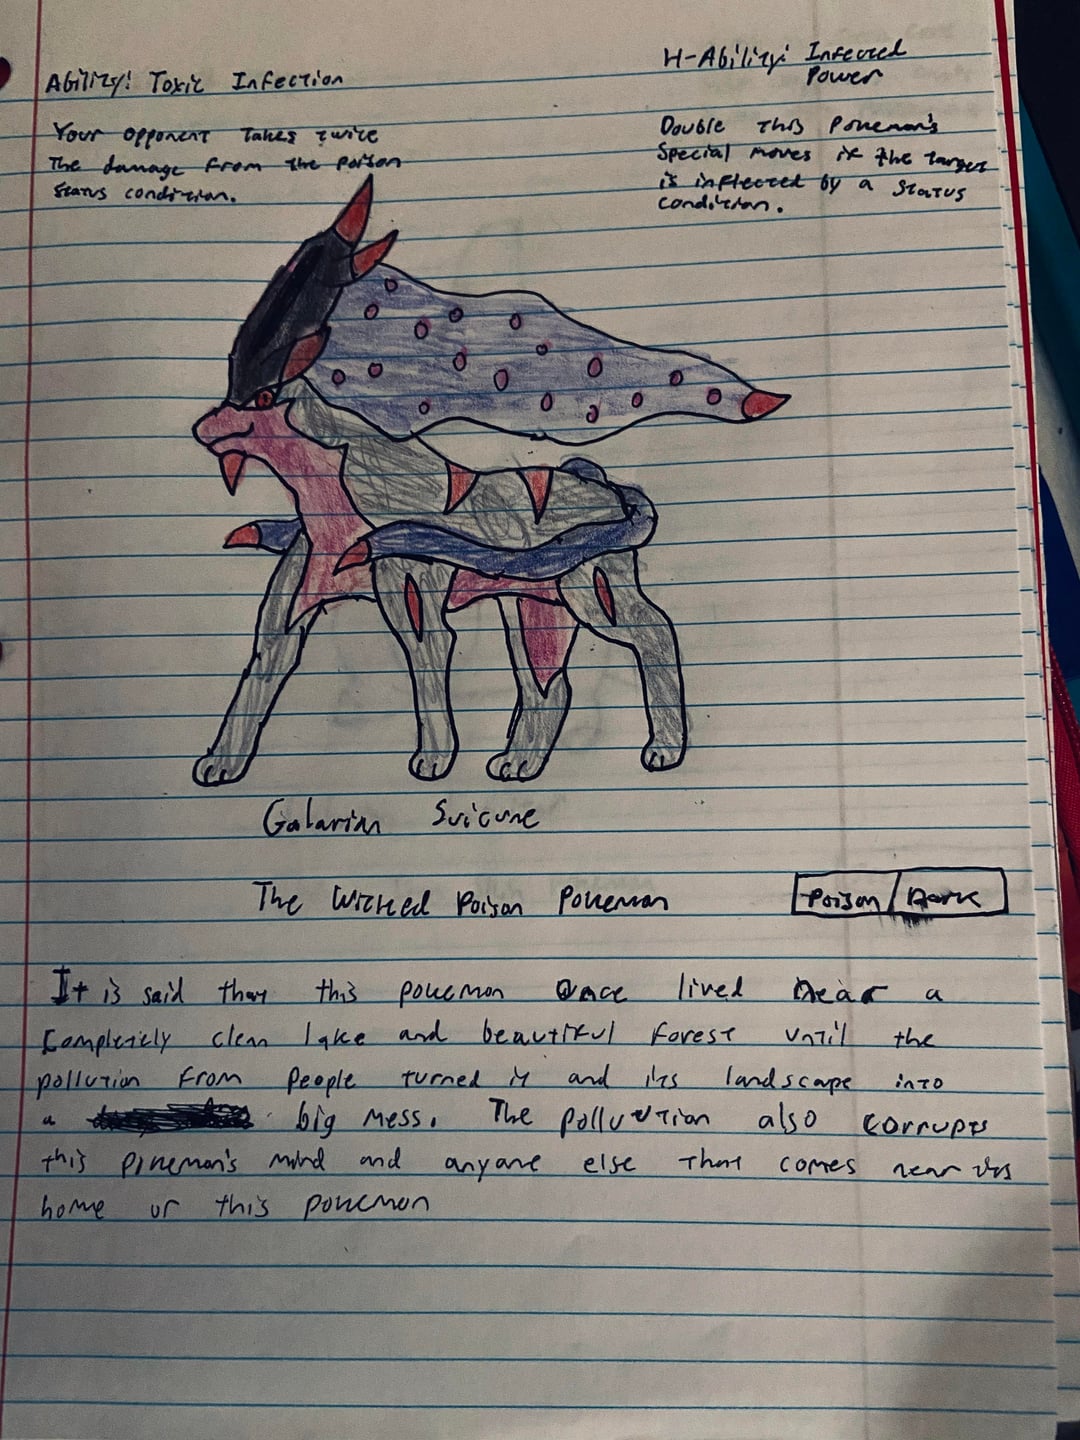 Ability: Toxic Infection
Your opponent takes twice
the damage from the poison
status condition.
H-Ability: Infected
Power
Double this Pokemon's
Special moves if the target
is inflected by a status
condition.
Galarian Suicune
The Wicked Poison Pokemon
Poison / Dark
It is said that this pokemon once lived near a
completely clean lake and beautiful forest until the
pollution from people turned it and its landscape into
a big mess. The pollution also corrupts
this pokemon's mind and anyone else that comes near its
home or this pokemon